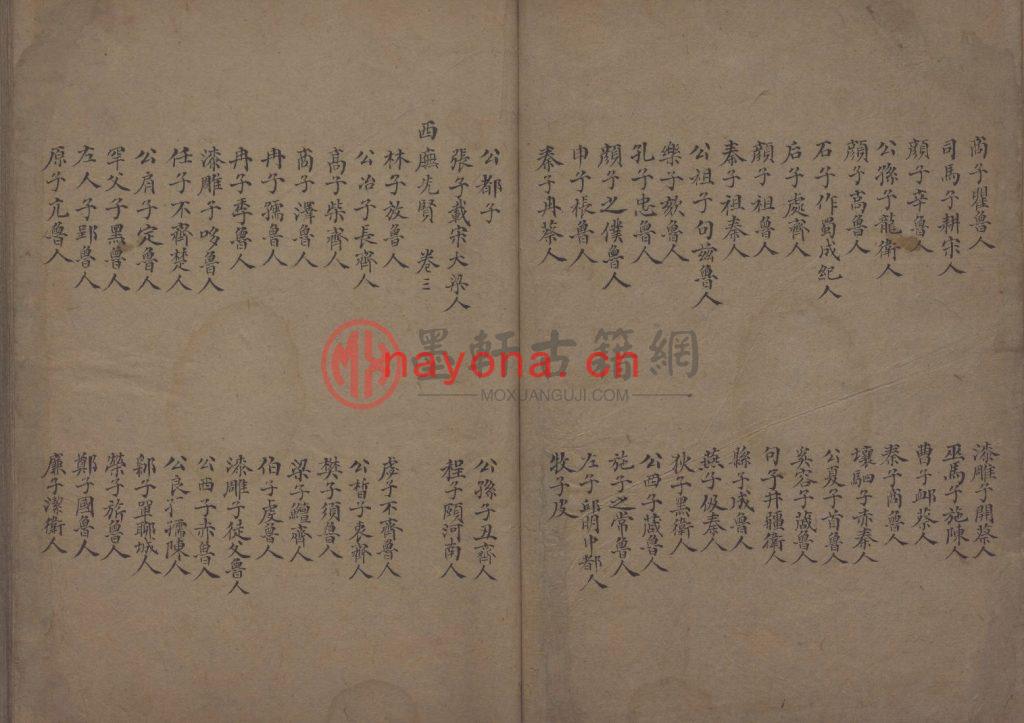 商子瞿魯人
漆雕子開蔡人
司馬子耕宋人
巫馬子施陳人
顏子辛魯人
曹子邺蔡人
公孫子龍衛人
秦子商魯人
顏子高魯人
壤駟子赤秦人
石子作蜀成紀人
公夏子首魯人
后子處齊人
奚容子蒧魯人
顏子祖魯人
句子井疆衛人
秦子祖秦人
縣子成魯人
公祖子句兹魯人
燕子伋秦人
樂子欬魯人
狄子黑衛人
孔子忠魯人
公西子蒧魯人
顏子之僕魯人
施子之常魯人
申子棖魯人
左子邱明中都人
秦子冉蔡人
牧子皮
公都子
公孫子丑齊人
張子載宋大梁人
程子頤河南人
西廡先賢 卷三
林子放魯人
虙子不齊魯人
公冶子長齊人
公晳子哀齊人
高子柴齊人
樊子須魯人
商子澤魯人
梁子鱣齊人
冉子孺魯人
伯子虔魯人
冉子季魯人
漆雕子徒父魯人
漆雕子哆魯人
公西子赤魯人
任子不齊楚人
公良子孺陳人
公肩子定魯人
鄡子單聊城人
罕父子黑魯人
榮子旂魯人
左人子郢魯人
鄭子國魯人
原子亢魯人
廉子潔衛人
墨軒古籍網
MOXUANGUJI.COM
nayona.cn